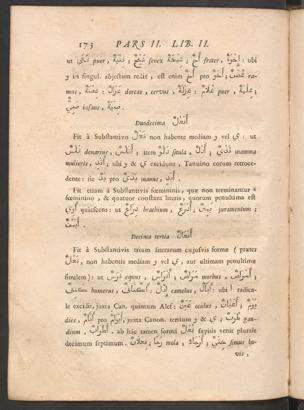 173 PARS II. LIB. II.
ut فَتًى puer, فِتْيَةٌ; شَيْخٌ senex شِيخَةٌ; أَخٌ frater, إِخْوَةٌ: ubi
و in singul. abjectum redit, est enim أَخٌ pro أَخَوٌ; غُصْنٌ ra-
mus, غِصَنَةٌ; غَزَالٌ dorcas, cervus, غِزْلَةٌ; غُلَامٌ puer, غِلْمَةٌ;
صَبِيٌّ infans, صِبْيَةٌ.
Duodecima أَفْعُلٌ
Fit à Substantivo فَعْلٌ non habente mediam و vel ي: ut
فَلْسٌ denarius, أَفْلُسٌ; item دَلْوٌ situla, أَدْلٍ; ثَدْيٌ mamma
mulieris, أَثْدٍ: ubi و & ي excidunt, Tanuino eorum retroce-
dente: sic يَدٌ pro يَدْيٌ manus, أَيْدٍ.
Fit etiam à Substantivis fœmininis, quæ non terminantur á
fœminino, & quatuor constant literis, quorum penultima est
اوي quiescens: ut ذِرَاعٌ brachium, أَذْرُعٌ; يَمِينٌ juramentum;
أَيْمُنٌ.
Decima tertia أَفْعَالٌ
Fit à Substantivis trium literarum cujusvis formæ (præter
فَعْلٌ, non habentis mediam و vel ي, aut ultimam penultimæ
similem): ut فَرَسٌ equus, أَفْرَاسٌ; مَرَضٌ morbus, أَمْرَاضٌ;
humerus, أَكْتَافٌ; إِبِلٌ camelus, آبَالٌ: ubi ا radica-
le excidit, juxta Can. quintum Alef: عُنُقٌ collus, أَعْنَاقٌ; يَوْمٌ
dies, أَيَّامٌ pro أَيْوَامٌ, juxta Canon. tertium و & ي; طَرَبٌ gau-
dium, أَطْرَابٌ. ab hac tamen formâ فَعَلٌ sæpiùs venit plurale
decimum septimum, فِعْلَاتٌ; رَحًا mola, أَرْحَاءٌ; حِقْوٌ sinus lu-
vis,